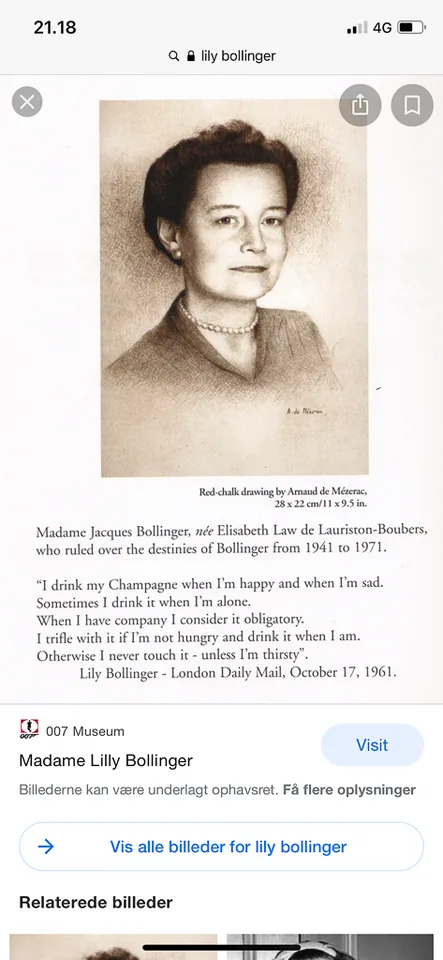 21.18
4G
lily bollinger
A. de Mézerac
Red-chalk drawing by Arnaud de Mézerac,
28 x 22 cm/11 x 9.5 in.
Madame Jacques Bollinger, née Elisabeth Law de Lauriston-Boubers,
who ruled over the destinies of Bollinger from 1941 to 1971.
“I drink my Champagne when I’m happy and when I’m sad.
Sometimes I drink it when I’m alone.
When I have company I consider it obligatory.
I trifle with it if I’m not hungry and drink it when I am.
Otherwise I never touch it - unless I’m thirsty”.
Lily Bollinger - London Daily Mail, October 17, 1961.
007
007 Museum
Visit
Madame Lilly Bollinger
Billederne kan være underlagt ophavsret. Få flere oplysninger
Vis alle billeder for lily bollinger
Relaterede billeder